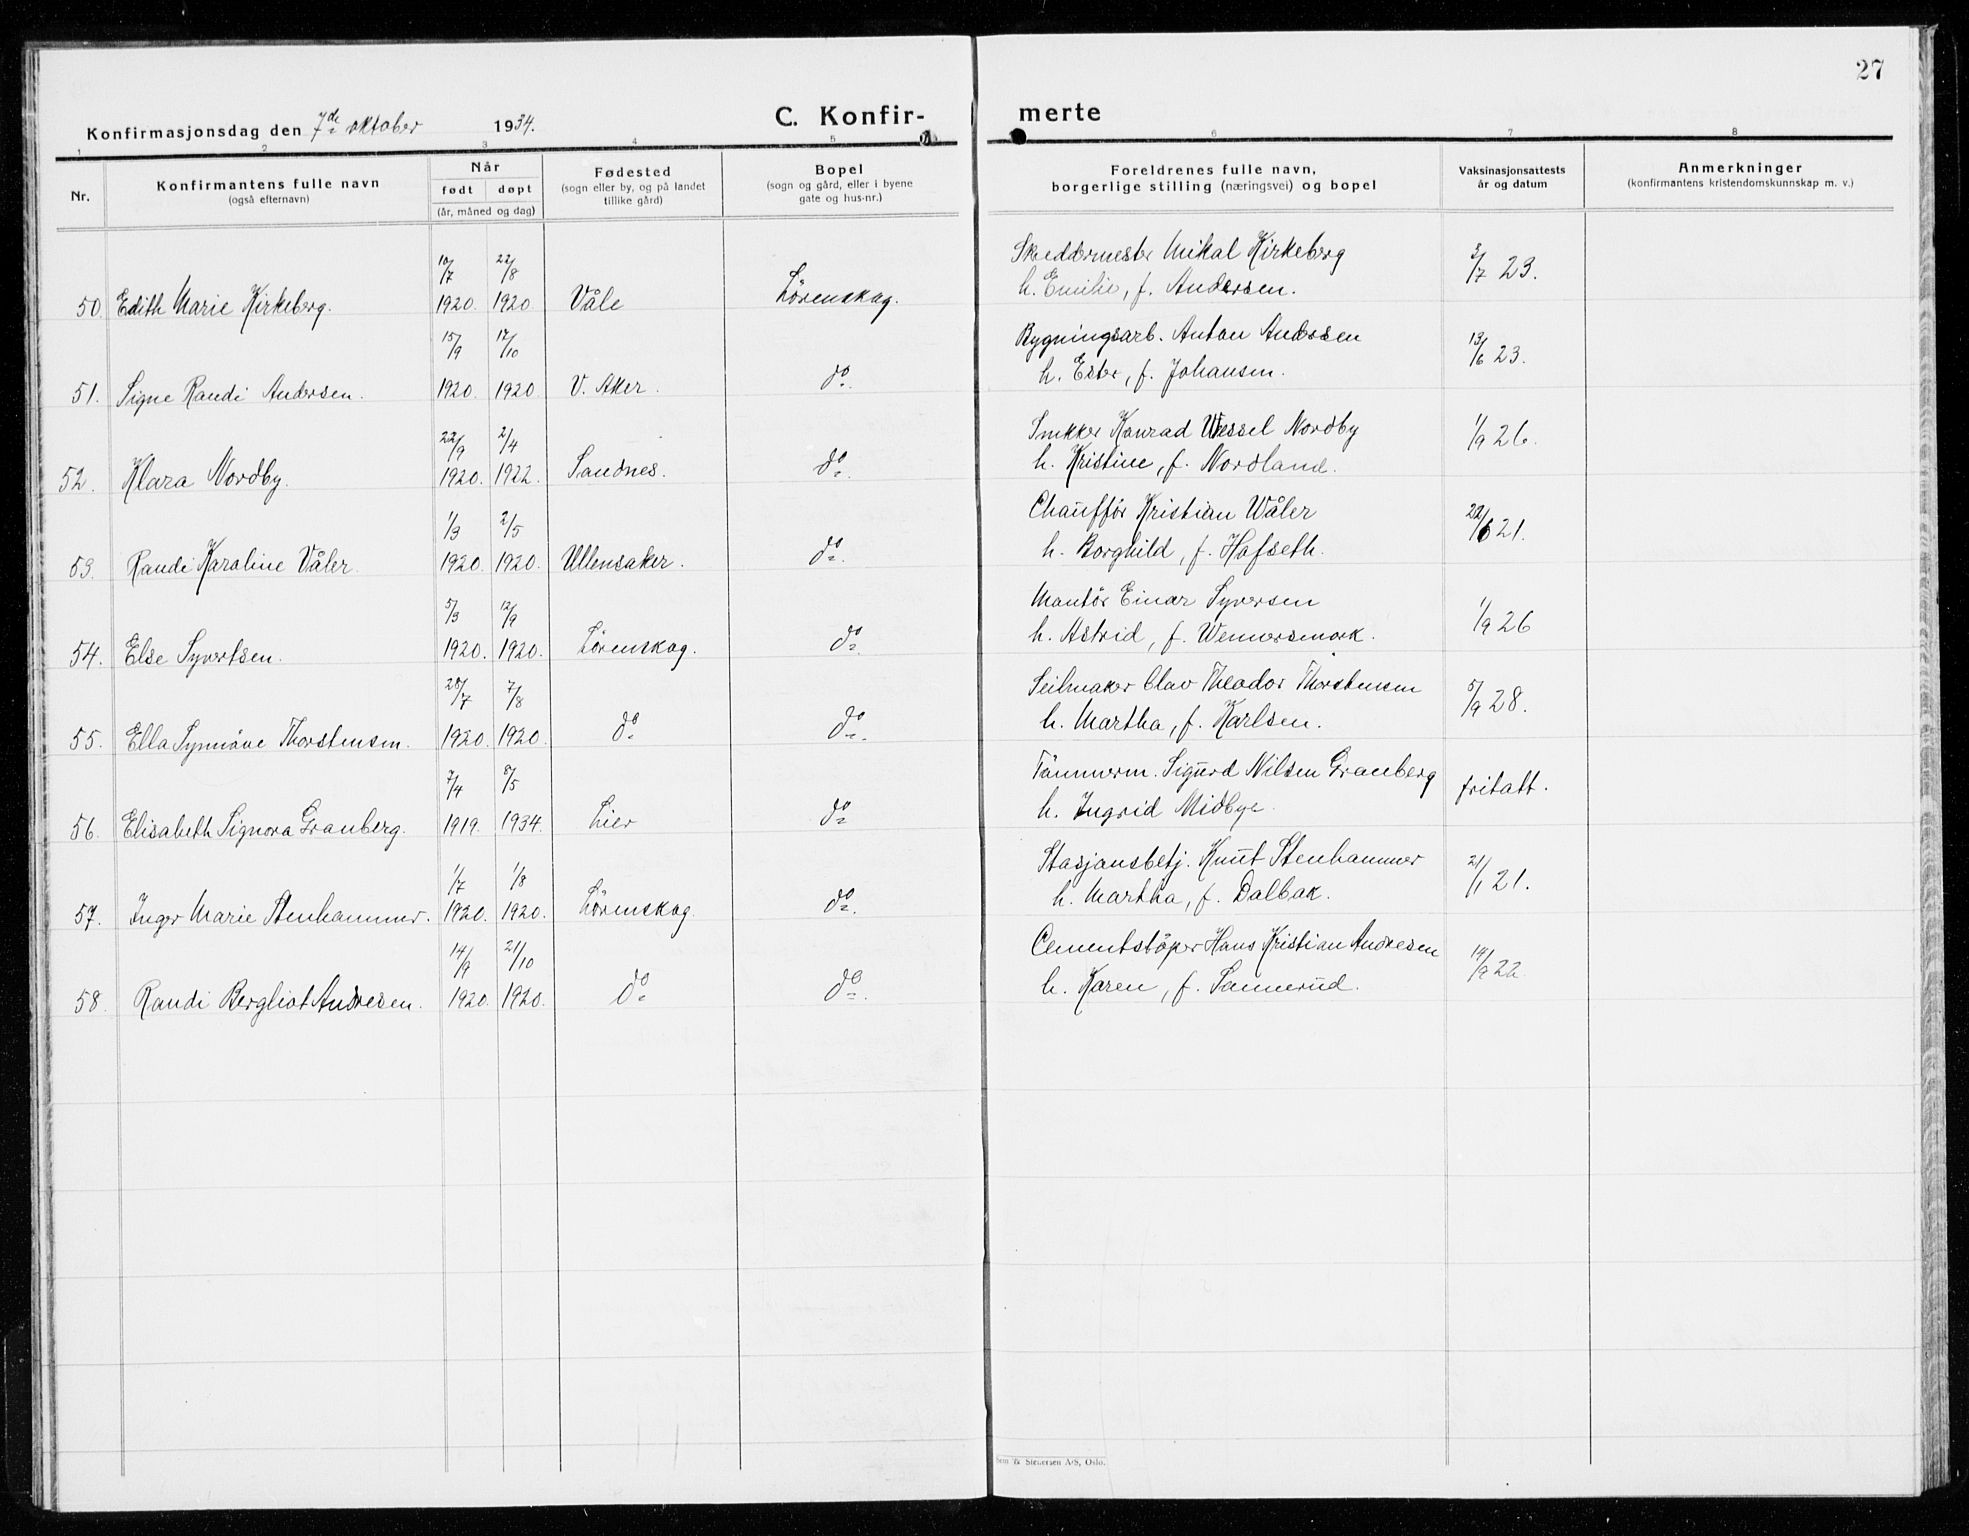 27
Konfirmasjonsdag den 7de oktober 1934.
C. Konfir- merte
1 2 3 4 5 6 7 8
Nr.
Konfirmantens fulle navn
(også efternavn)
Når
født døpt
(år, måned og dag)
Fødested
(sogn eller by, og på landet
tillike gård)
Bopel
(sogn og gård, eller i byene
gate og hus-nr.)
Foreldrenes fulle navn,
borgerlige stilling (næringsvei) og bopel
Vaksinasjonsattests
år og datum
Anmerkninger
(konfirmantens kristendomskunnskap m. v.)
10/7 22/8 Skreddermester Mikal Kirkeberg
50. Edith Marie Kirkeberg. 1920. 1920. Våle Lørenskog. h. Emilie, f. Andersen. 3/7 23.
15/9 17/10 Bygningsarb. Anton Andersen
51. Signe Randi Andersen. 1920. 1920 V. Aker. do. h. Ester, f. Johansen. 13/6 23.
22/9 2/4 Snekker Konrad Wessel Nordby
52. Klara Nordby. 1920. 1922. Sandnes. do. h. Kristine, f. Nordland. 1/9 26.
1/3 2/5 Chauffør Kristian Wåler
53. Randi Karoline Våler. 1920. 1920. Ullensaker. do. h. Borghild, f. Hafseth. 22/6 21.
5/3 12/9 Montør Einar Syversen
54. Else Syvertsen. 1920. 1920. Lørenskog. do h. Astrid, f. Wennersmork. 1/9 26
28/7 7/8 Seilmaker Olav Theodor Thorstensen
55. Ella Synnøve Thorstensen. 1920. 1920. do do. h. Martha, f. Karlsen. 5/9 28.
7/4 8/5 Tømmerm. Sigurd Nilsen Granberg
56. Elisabeth Signora Granberg. 1919. 1934. Lier do h. Ingrid Midbye. fritatt.
1/7 1/8 Stasjonsbetj. Knut Stenhammer
57. Inger Marie Stenhammer. 1920. 1920. Lørenskog. do. h. Martha, f. Dalbak. 21/1 21.
14/9 21/10 Cementstøper Hans Kristian Andresen
58. Randi Bergliot Andresen. 1920. 1920. do do. h. Karen, f. Sannerud. 14/9 22
Sem & Stenersen A/S, Oslo.